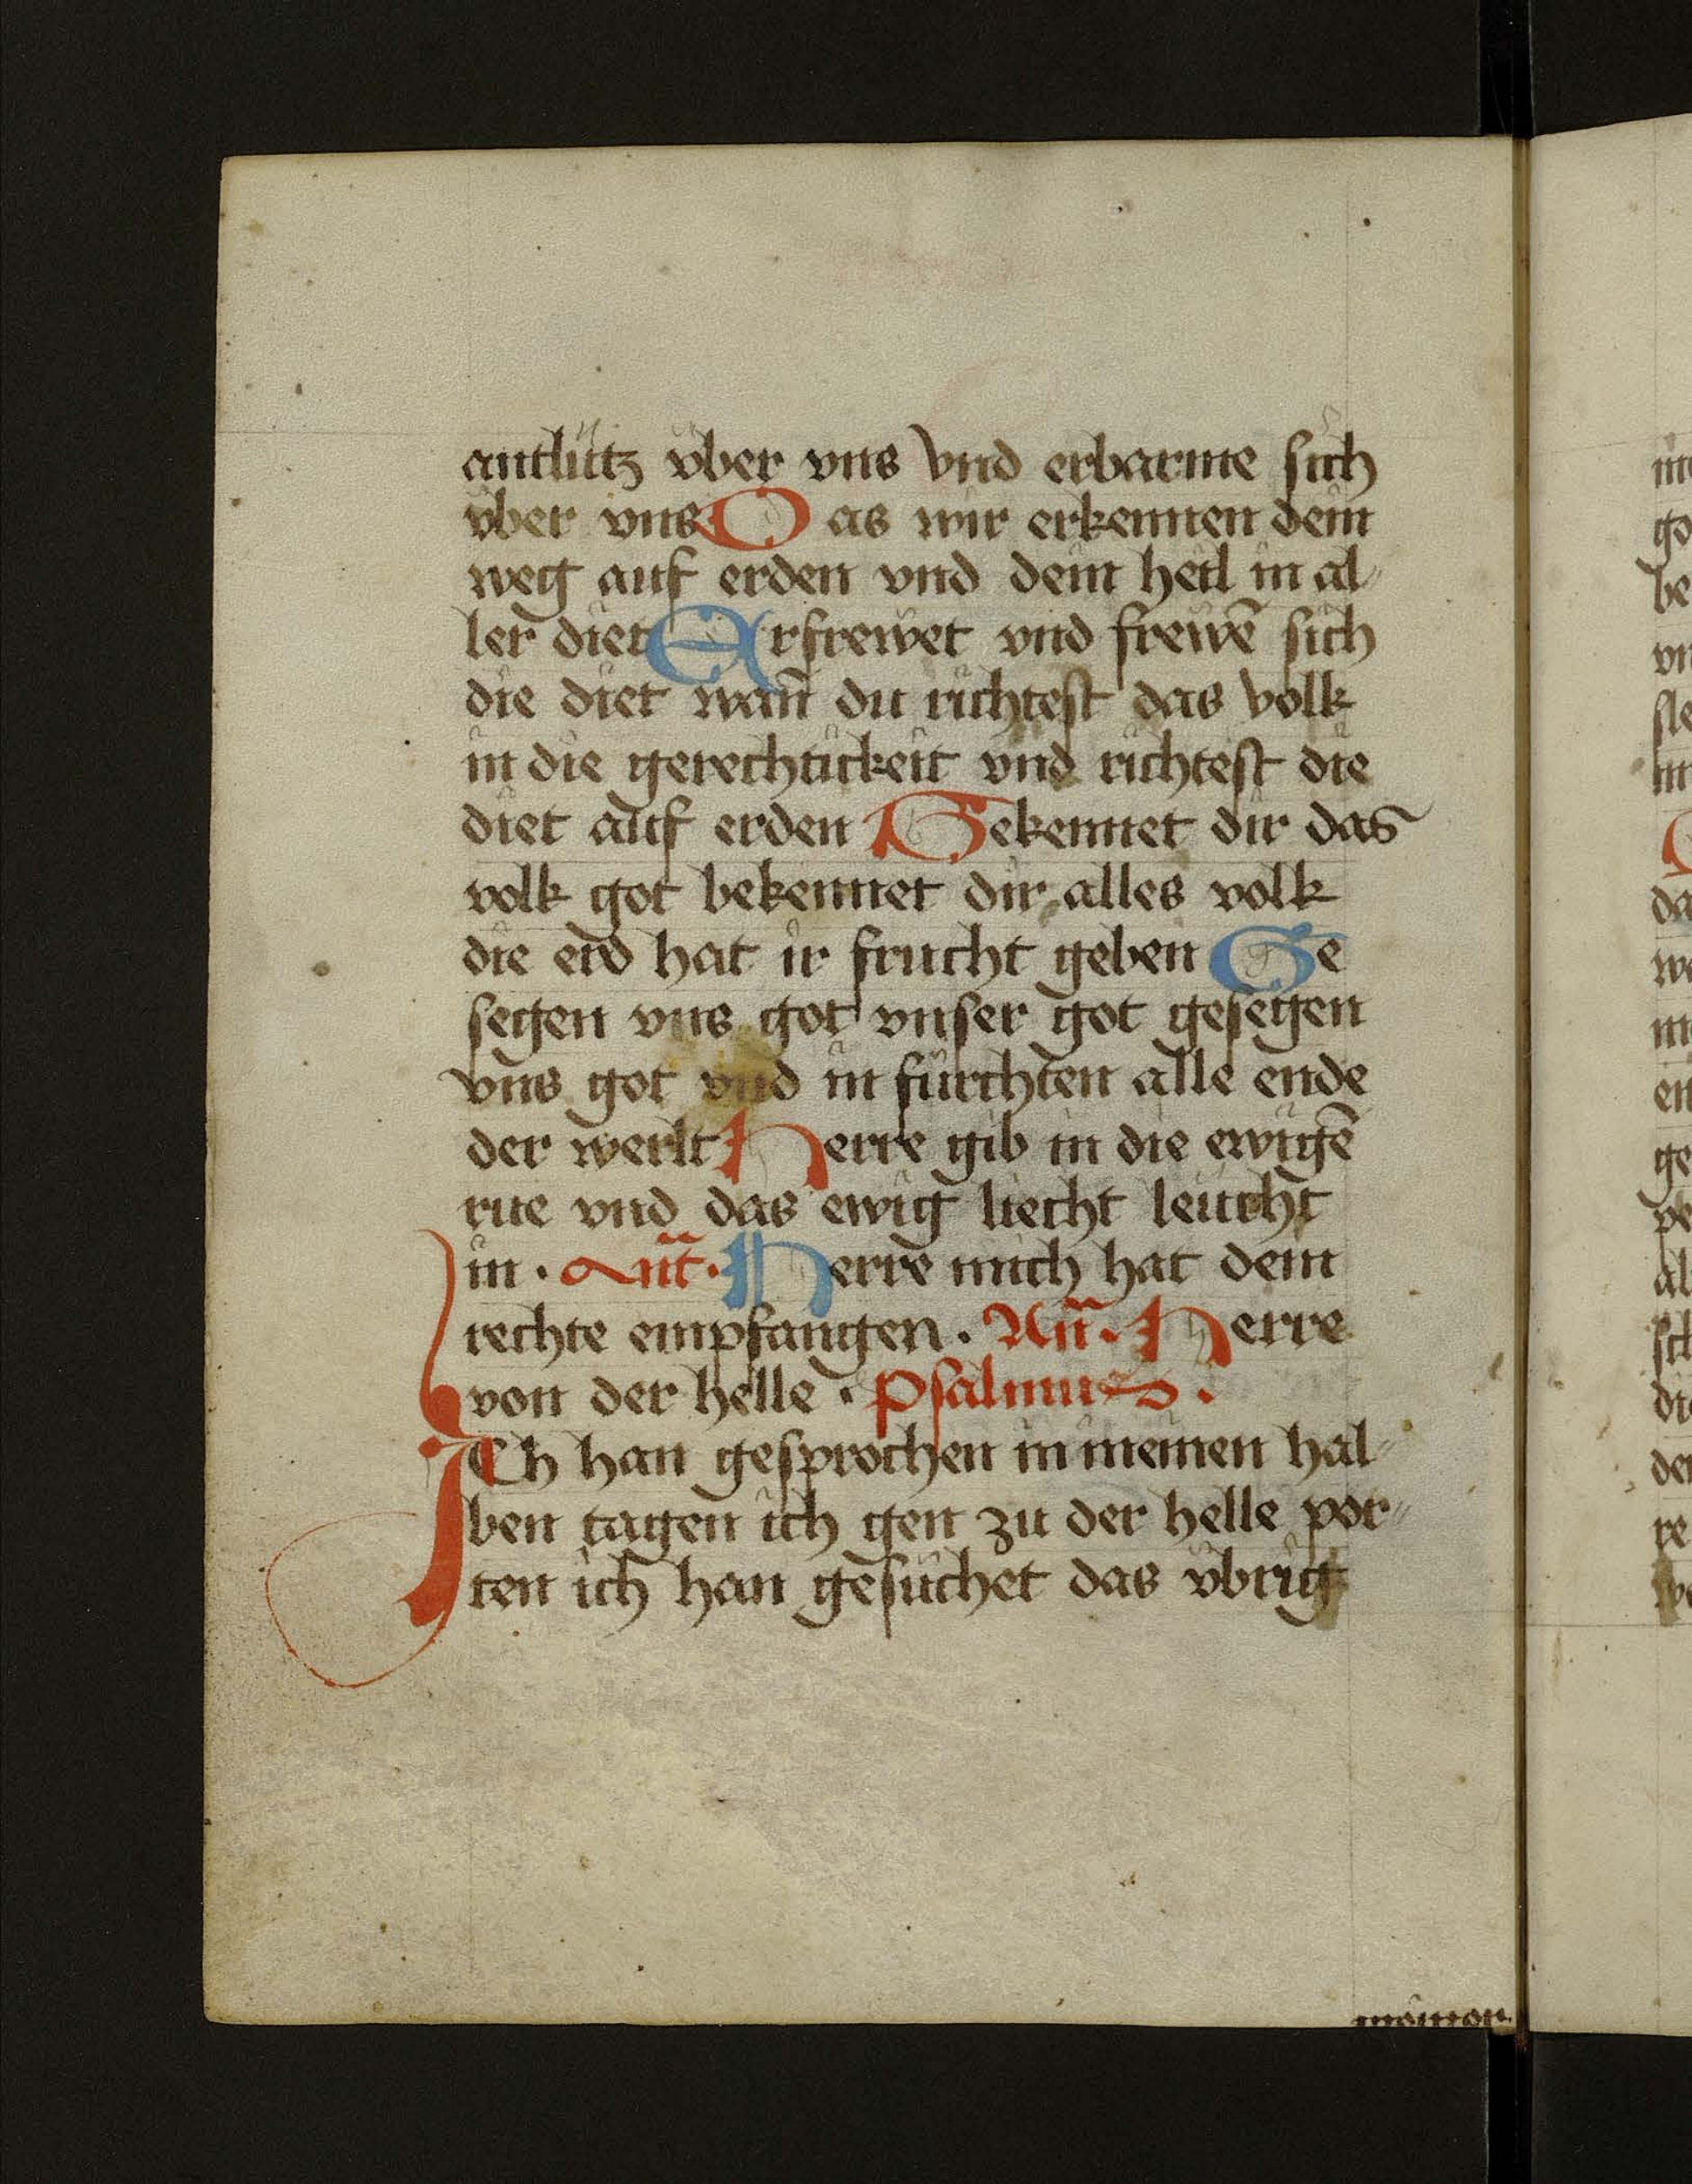 antlütz vber vns vnd erbarme sich
vber vns Das wir erkennen dein
weg auf erden vnd dein heil in al
ler diet Erfrewet vnd frewē sich
die diet wañ du richtest das volk
in die gerechtickeit vnd richtest die
diet auf erden Bekennet dir das
volk got bekennet dir alles volk
die erd hat ir frucht geben Ge
segen vns got vnser got gesegen
vns got vnd in fürchten alle ende
der werlt Herre gib in die ewigē
rue vnd das ewig liecht leücht
in · Añt · Herre mich hat dein
rechte empfangen · Añ · Herre
von der helle · Psalmus ·
ICh han gesprochen in meinen hal
ben tagen ich gen zu der helle por
ten ich han gesuchet das vbrig